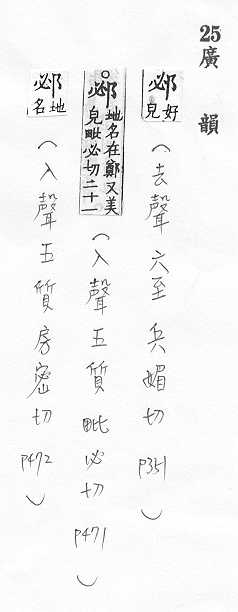 25廣韻
邲 好皃（去聲六至兵媚切 p351）
○邲 地名在鄭又美皃毗必切二十一（入聲五質毗必切 p471）
邲 地名（入聲五質房密切 p472）